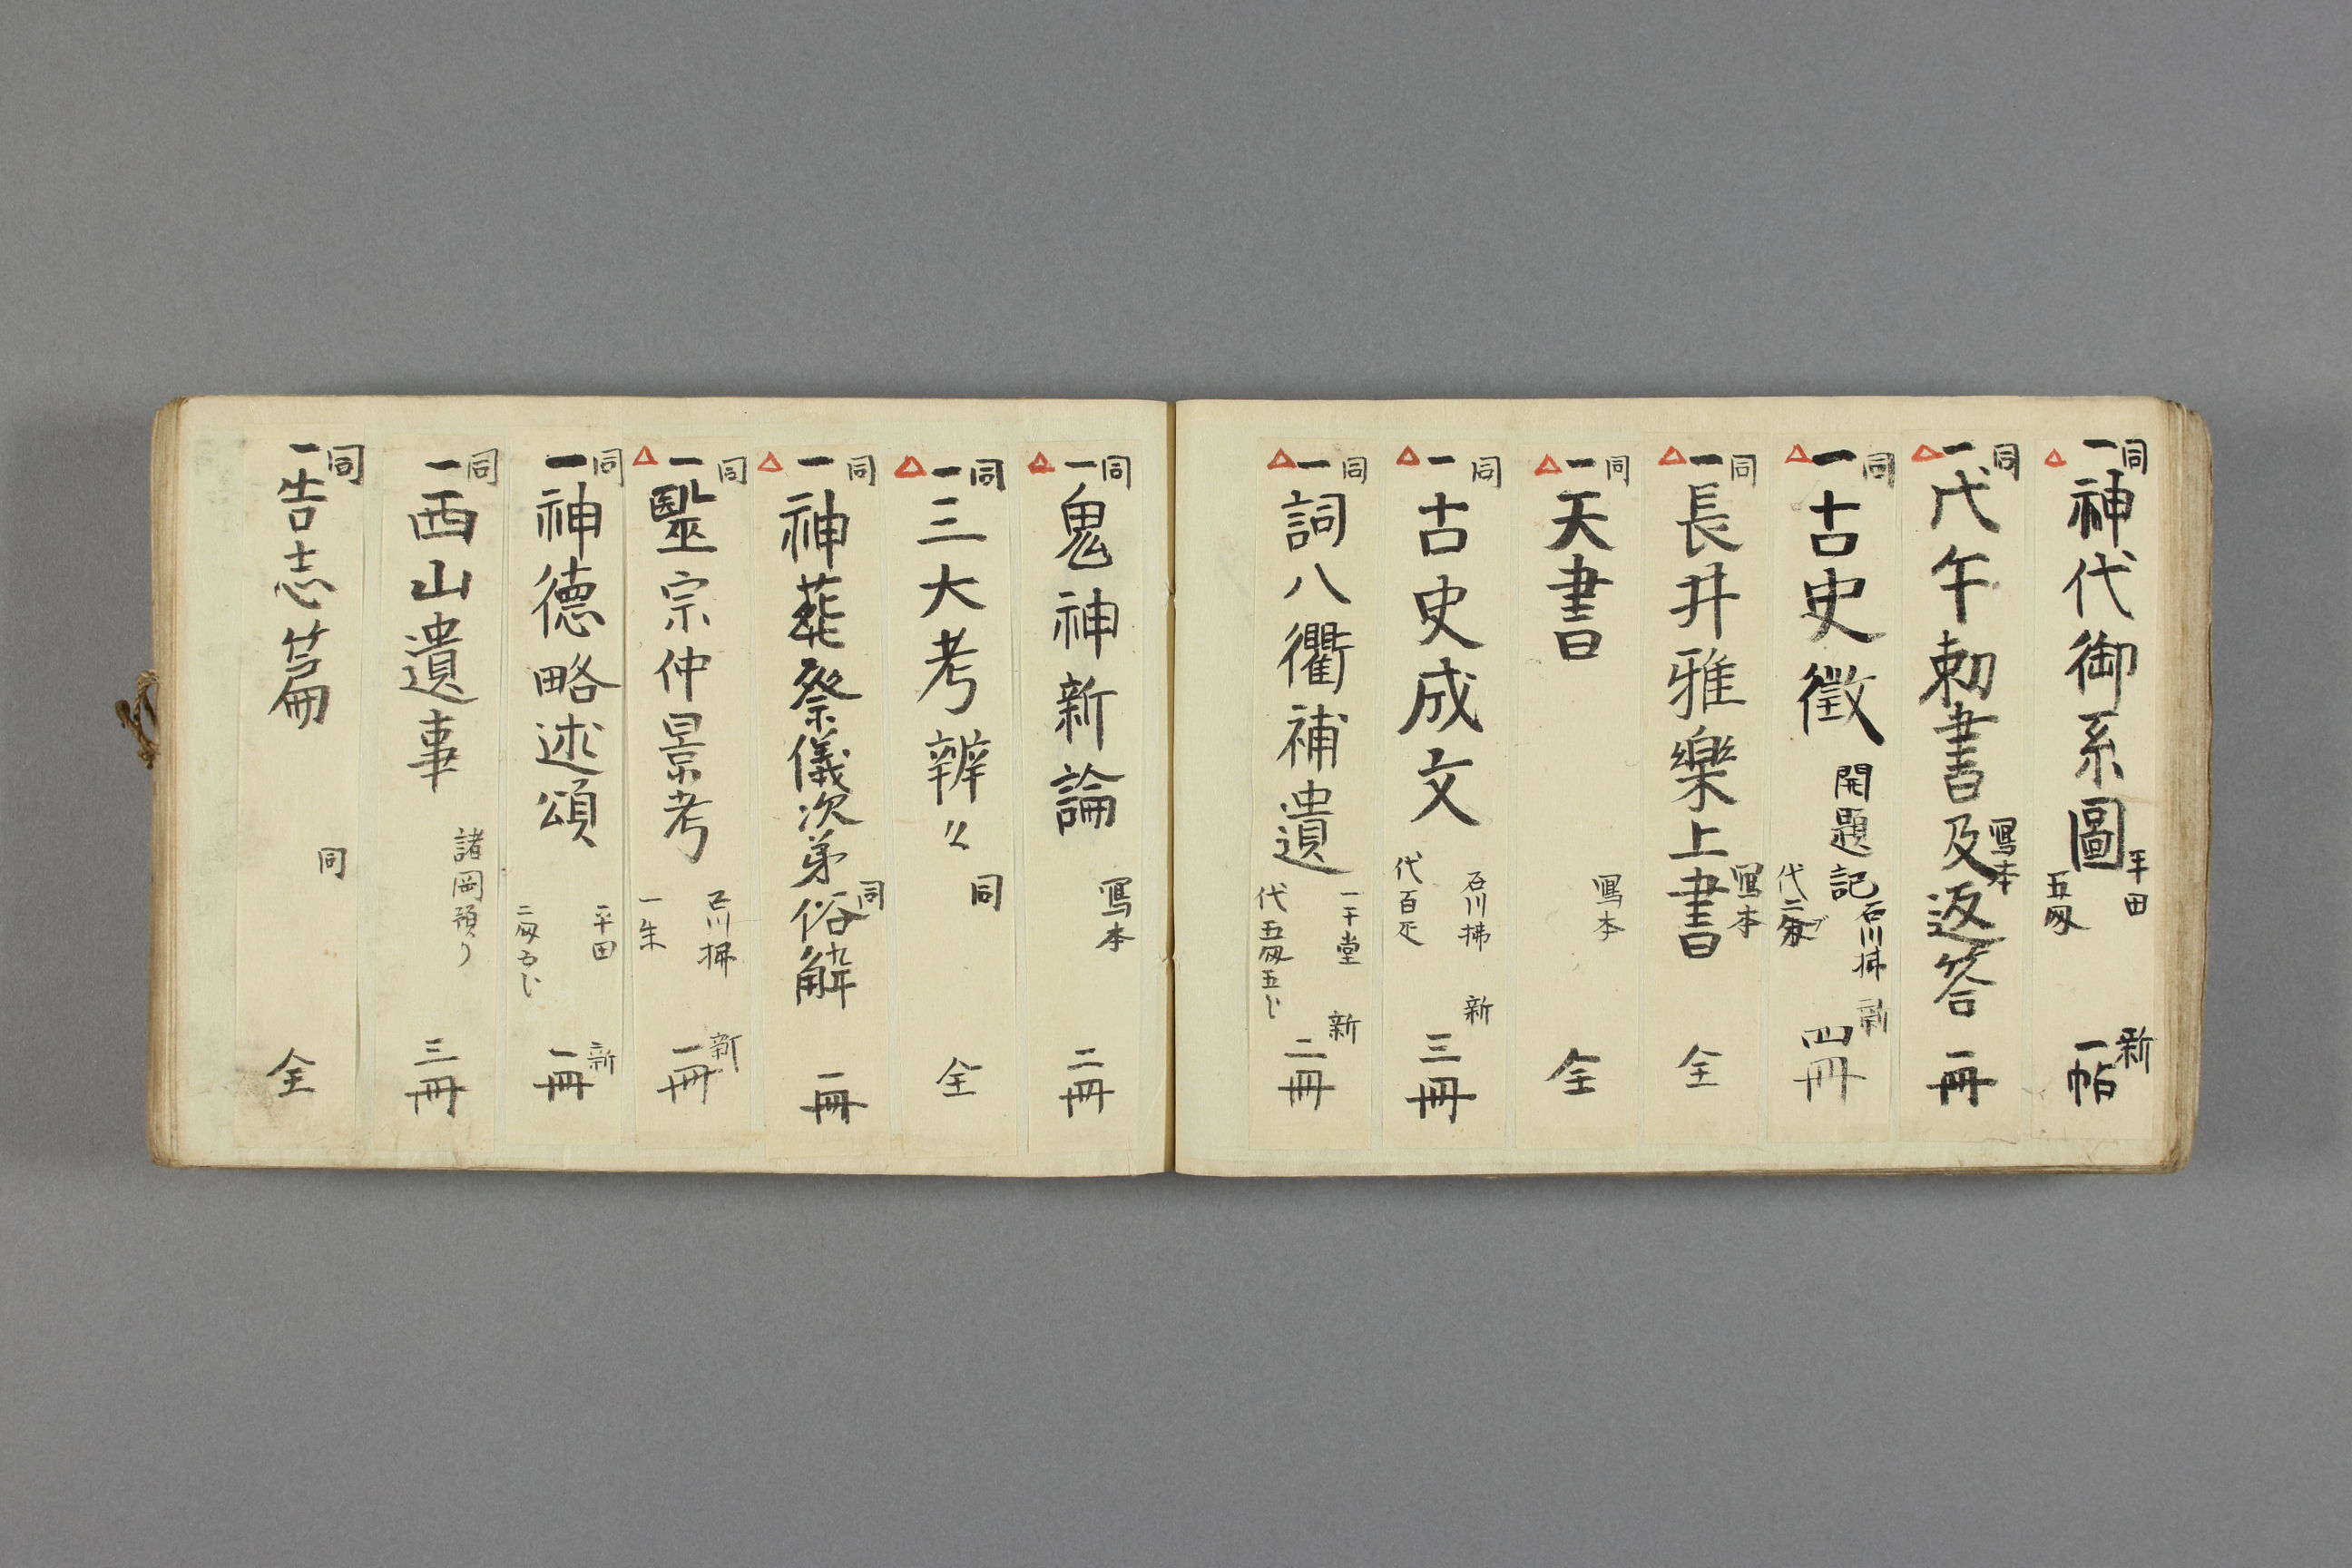 同
一神代御系圖 平田 五匁 新 一帖
同
一戊午勅書及返答 寫本 一冊
同
一古史徵 開題記 石川拂 代二分 新 四冊
同
一長井雅樂上書 寫本 全
同
一天書 寫本 全
同
一古史成文 石川拂 代百疋 新 三冊
同
一詞八衢補遺 一千堂 代五匁五分 新 二冊
同
一鬼神新論 寫本 二冊
同
一三大考辨〻 同 全
同
一神葬祭儀次第俗解 同 一冊
同
一毉宗仲景考 石川拂 一朱 新 一冊
同
一神德略述頌 平田 二匁 新 一冊
同
一西山遺事 諸岡預り 三冊
同
一告志篇 同 全